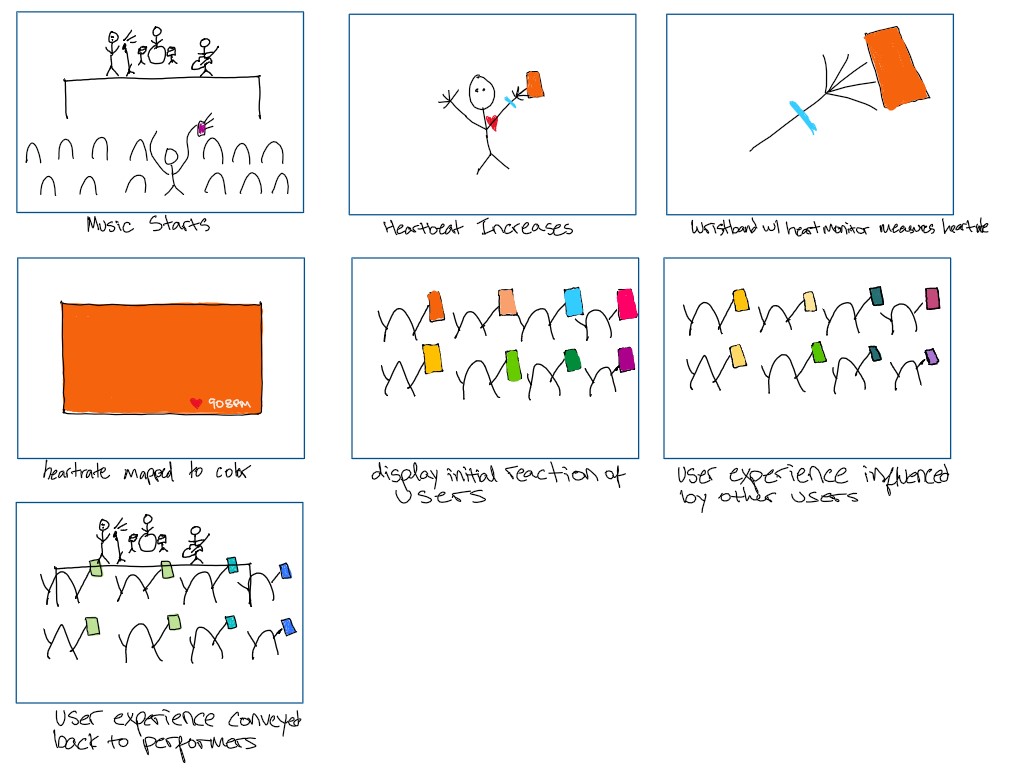 Music Starts
Heartbeat Increases
Wristband w/ heart monitor measures heartrate
heartrate mapped to color
90BPM
display initial reaction of
users
User experience influenced
by other users
User experience conveyed
back to performers